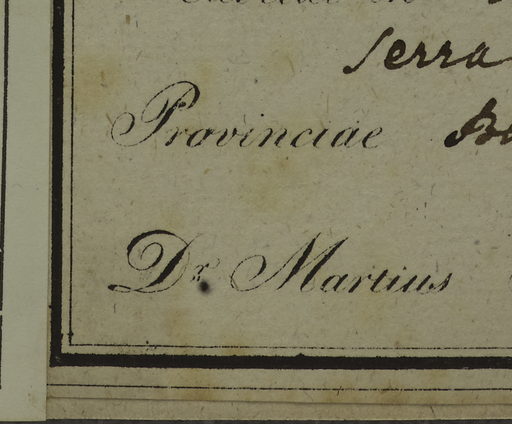 Serra
Provinciae
Dr. Martius